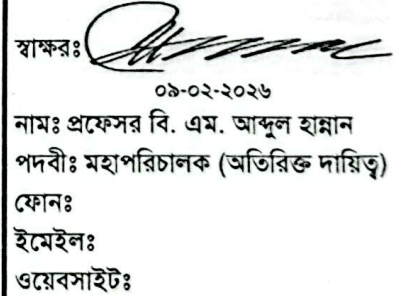 স্বাক্ষরঃ
০৯-০২-২০২৬
নামঃ প্রফেসর বি. এম. আব্দুল হান্নান
পদবীঃ মহাপরিচালক (অতিরিক্ত দায়িত্ব)
ফোনঃ
ইমেইলঃ
ওয়েবসাইটঃ